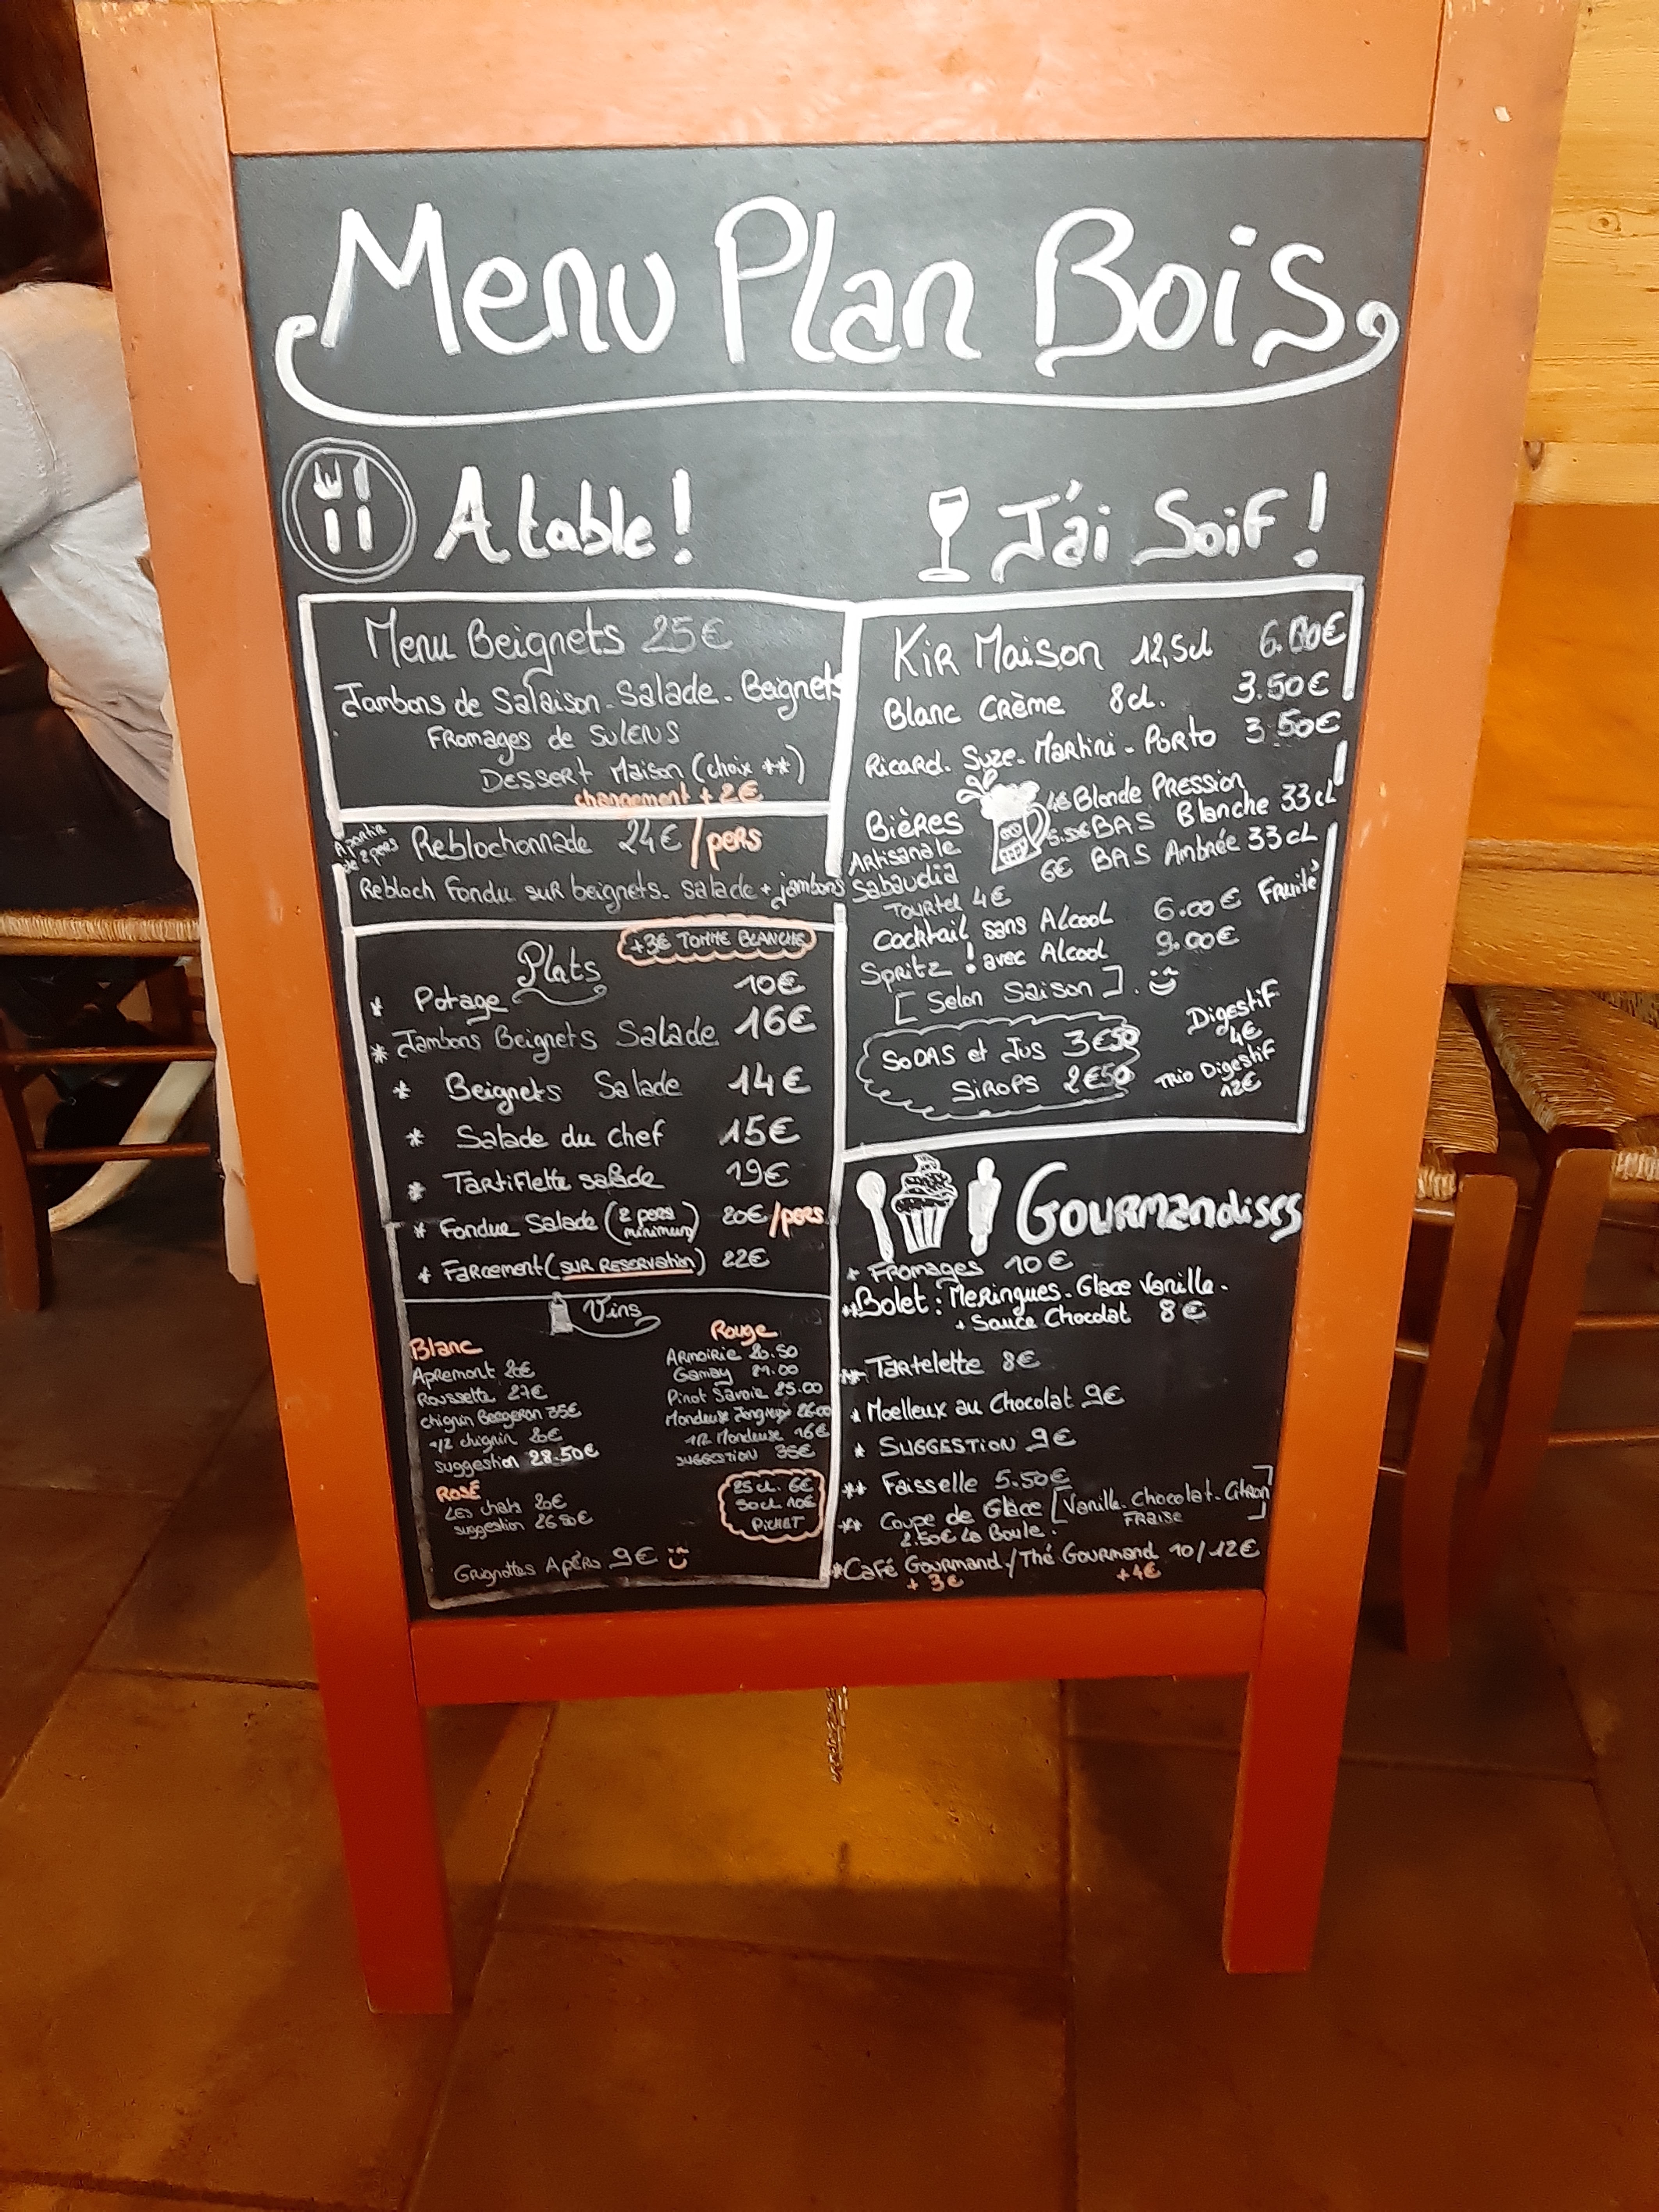 Menu Plan Bois
A table !
Menu Beignets 25€
Jambons de Salaison - Salade - Beignets
Fromages de SULENS
Dessert Maison (choix **)
changement + 2€
A partir de 2 pers
Reblochonnade 24€/pers
Rebloch Fondu sur beignets - salade + jambons
+3€ TOMME BLANCHE
Plats
* Potage 10€
* Jambons Beignets Salade 16€
* Beignets Salade 14€
* Salade du chef 15€
* Tartiflette salade 19€
* Fondue Salade (2 pers minimum) 20€/pers
* Farcement (SUR RESERVATION) 22€
Vins
Blanc
Apremont 20€
Roussette 27€
chignin Bergeron 35€
1/2 chignin 20€
suggestion 28.50€
Rosé
Les chats 20€
suggestion 26.50€
Rouge
Armoirie 20.50
Gamay 21.00
Pinot Savoie 25.00
Mondeuse Jongieux 26.00
1/2 Mondeuse 16€
SUGGESTION 35€
25cl. 6€
50cl. 10€
PICHET
Grignottes Apéro 9€
J'ai Soif !
Kir Maison 12,5cl 6.00€
Blanc Crème 8cl. 3.50€
Ricard - Suze - Martini - Porto 3.50€
Bières
Artisanale
Sabaudia
4€ Blonde Pression
5.5€ BAS Blanche 33cL
6€ BAS Ambrée 33cL
Tourtel 4€
Fruité
Cocktail sans Alcool 6.00€
Spritz ! avec Alcool 9.00€
[ Selon Saison ].
SODAS et Jus 3€50
SIROPS 2€50
Digestif
4€
Trio Digestif
12€
Gourmandises
* Fromages 10€
** Bolet : Meringues - Glace Vanille -
+ Sauce Chocolat 8€
** Tartelette 8€
* Moelleux au Chocolat 9€
* SUGGESTION 9€
** Faisselle 5.50€
** Coupe de Glace [Vanille - Chocolat - Citron
FRAISE]
2.50€ La Boule.
* Café Gourmand / Thé Gourmand 10/12€
+ 3€ +4€